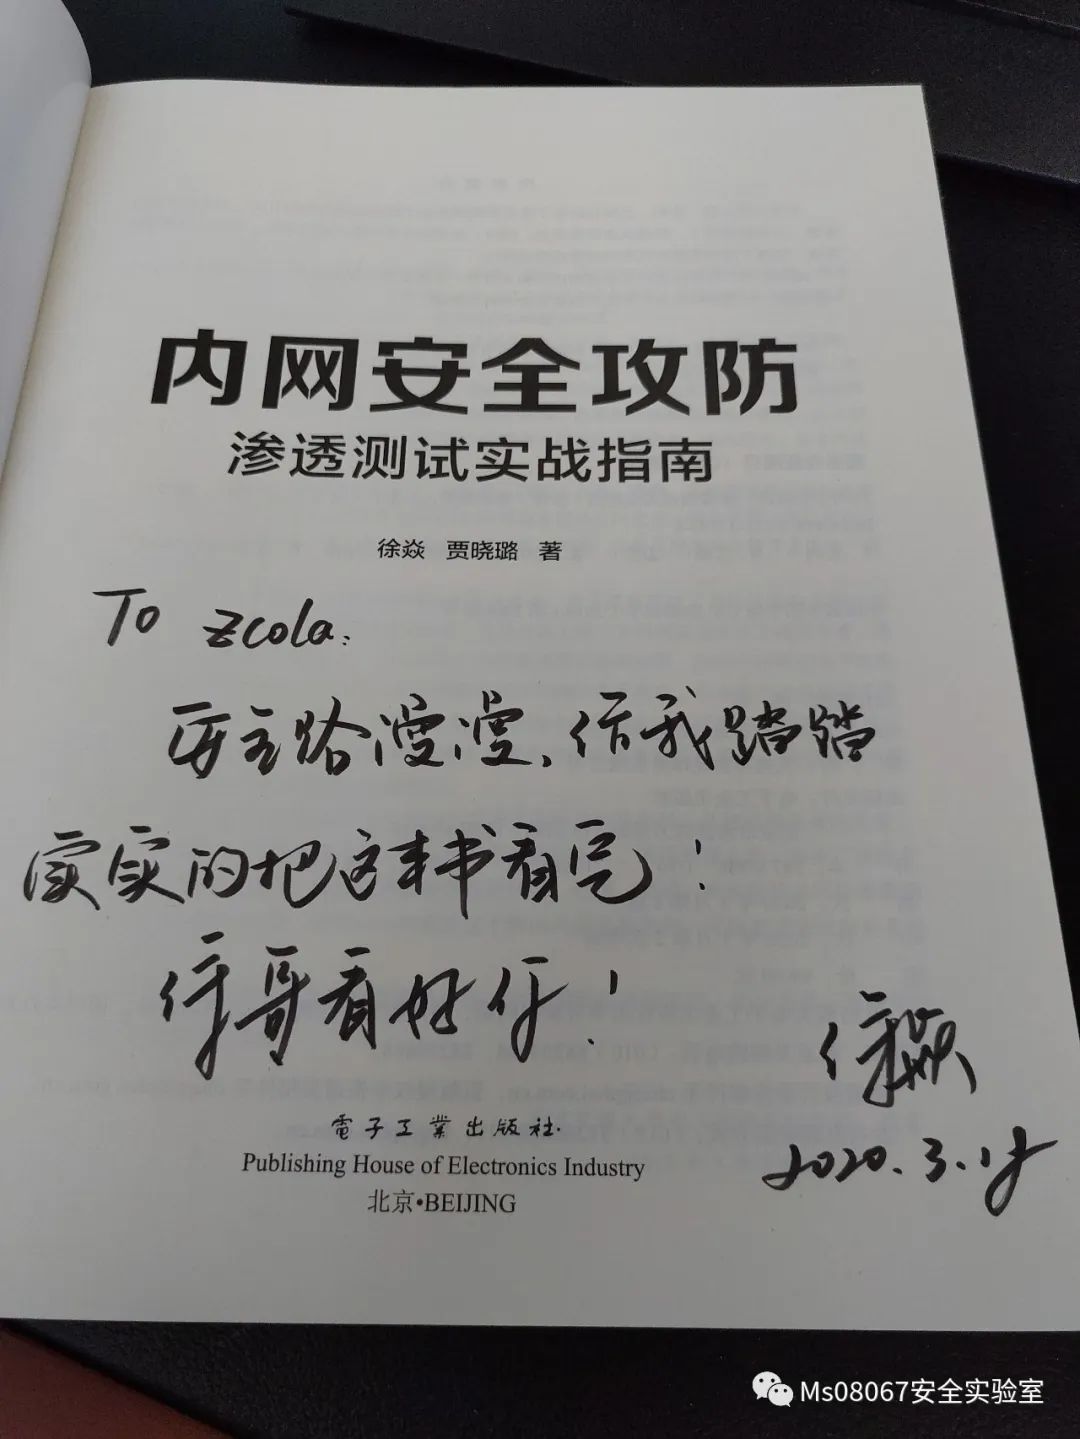 内网安全攻防
渗透测试实战指南
徐焱 贾晓璐 著
To zcola:
安全路漫漫、给我踏踏
实实的把这本书看完！
徐哥看好你！
徐焱
2020.3.15
電子工業出版社·
Publishing House of Electronics Industry
北京•BEIJING
Ms08067安全实验室